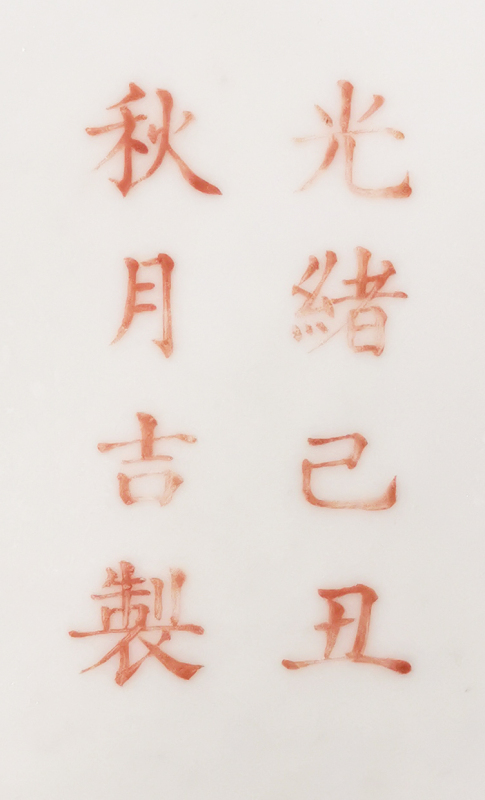 光緒己丑
秋月吉製